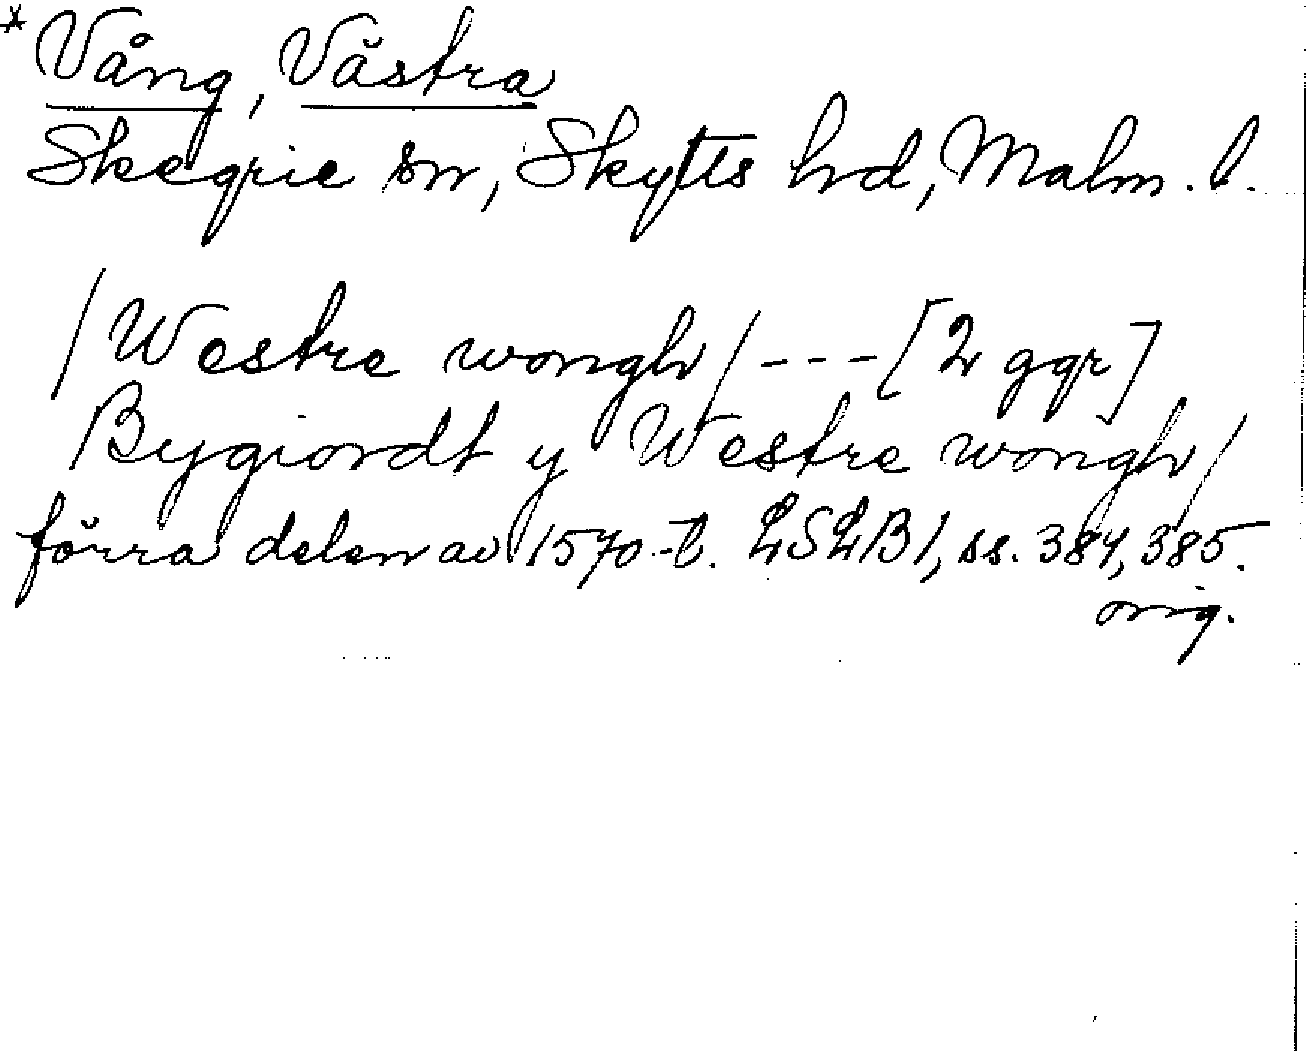 *Vång, Västra
Skegrie sn, Skytts hrd, Malm. l.
/Westre wongh/---[2 ggr]
Bygiordt y Westre wongh/
förra delen av 1570-t. LSLB1, ss. 384, 385.
orig.